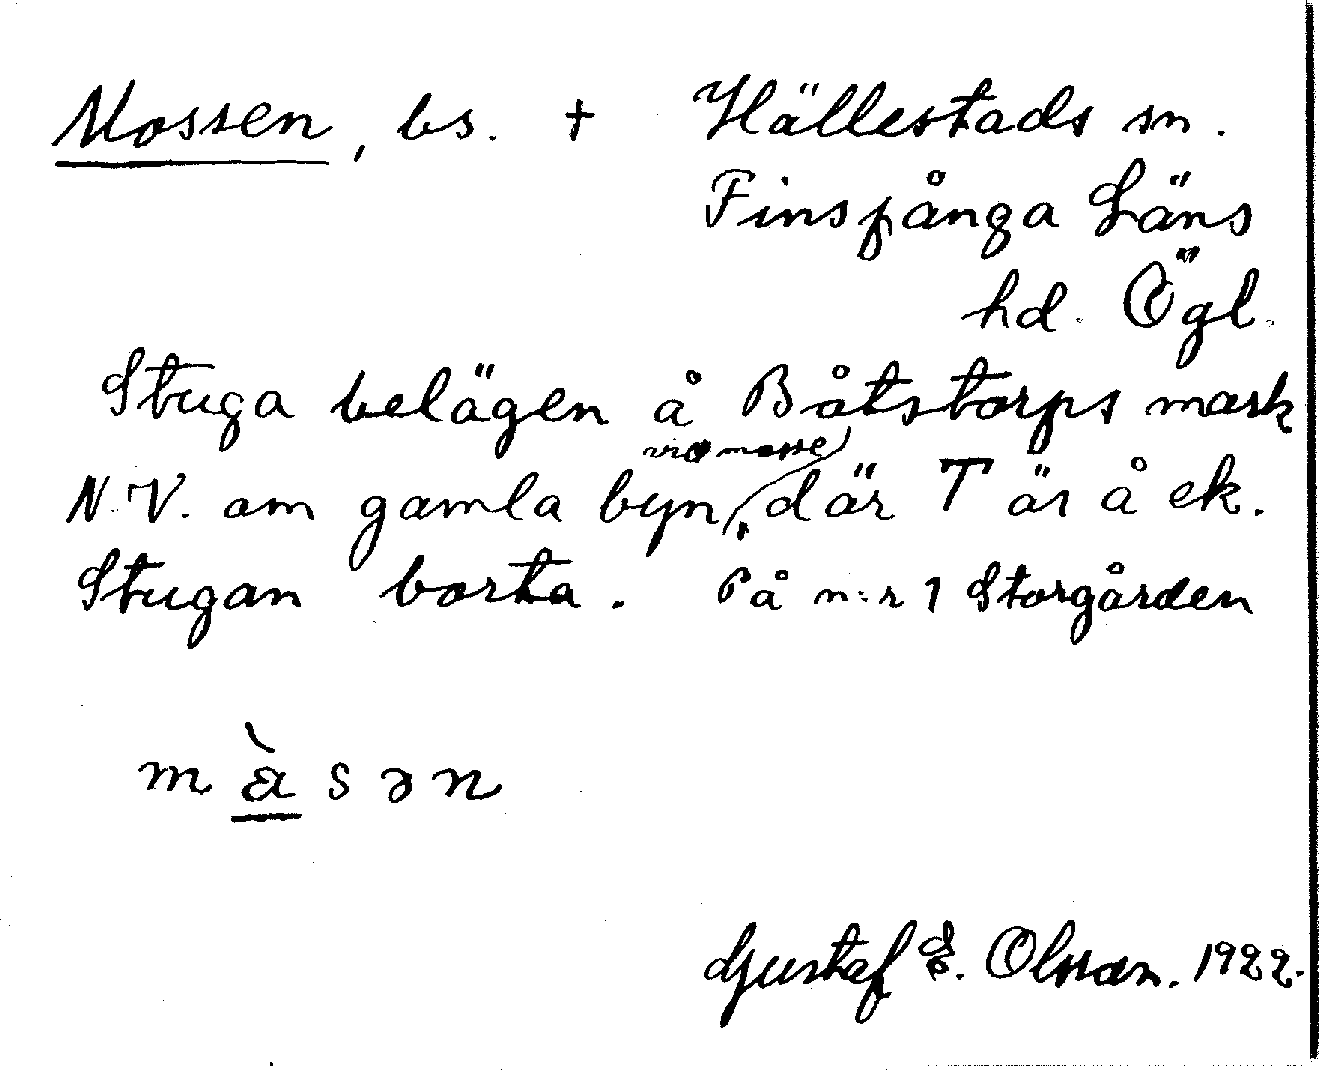 Mossen, bs. † Hällestads sn.
Finspånga Läns
hd. Ögl.
Stuga belägen å Båtstorps mark
N.V. om gamla byn, vid mosse, där T är å ek.
Stugan borta. På n:r 1 Storgården
m å̀ s ə n
Gustaf E. Olsson. 1922.